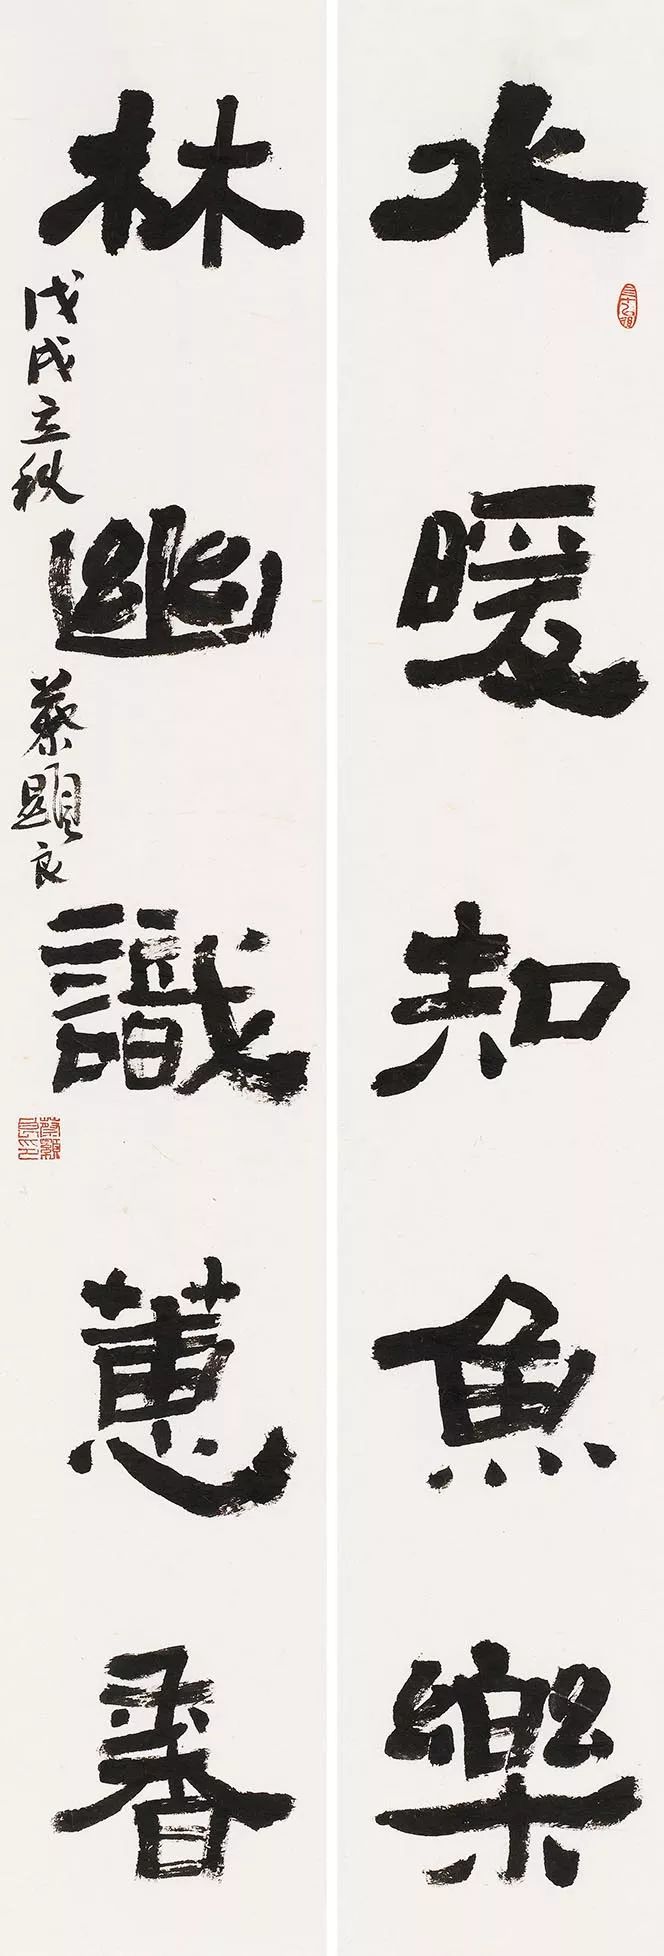 水暖知魚樂
林幽識蕙香
戊戌立秋
蔡顯良